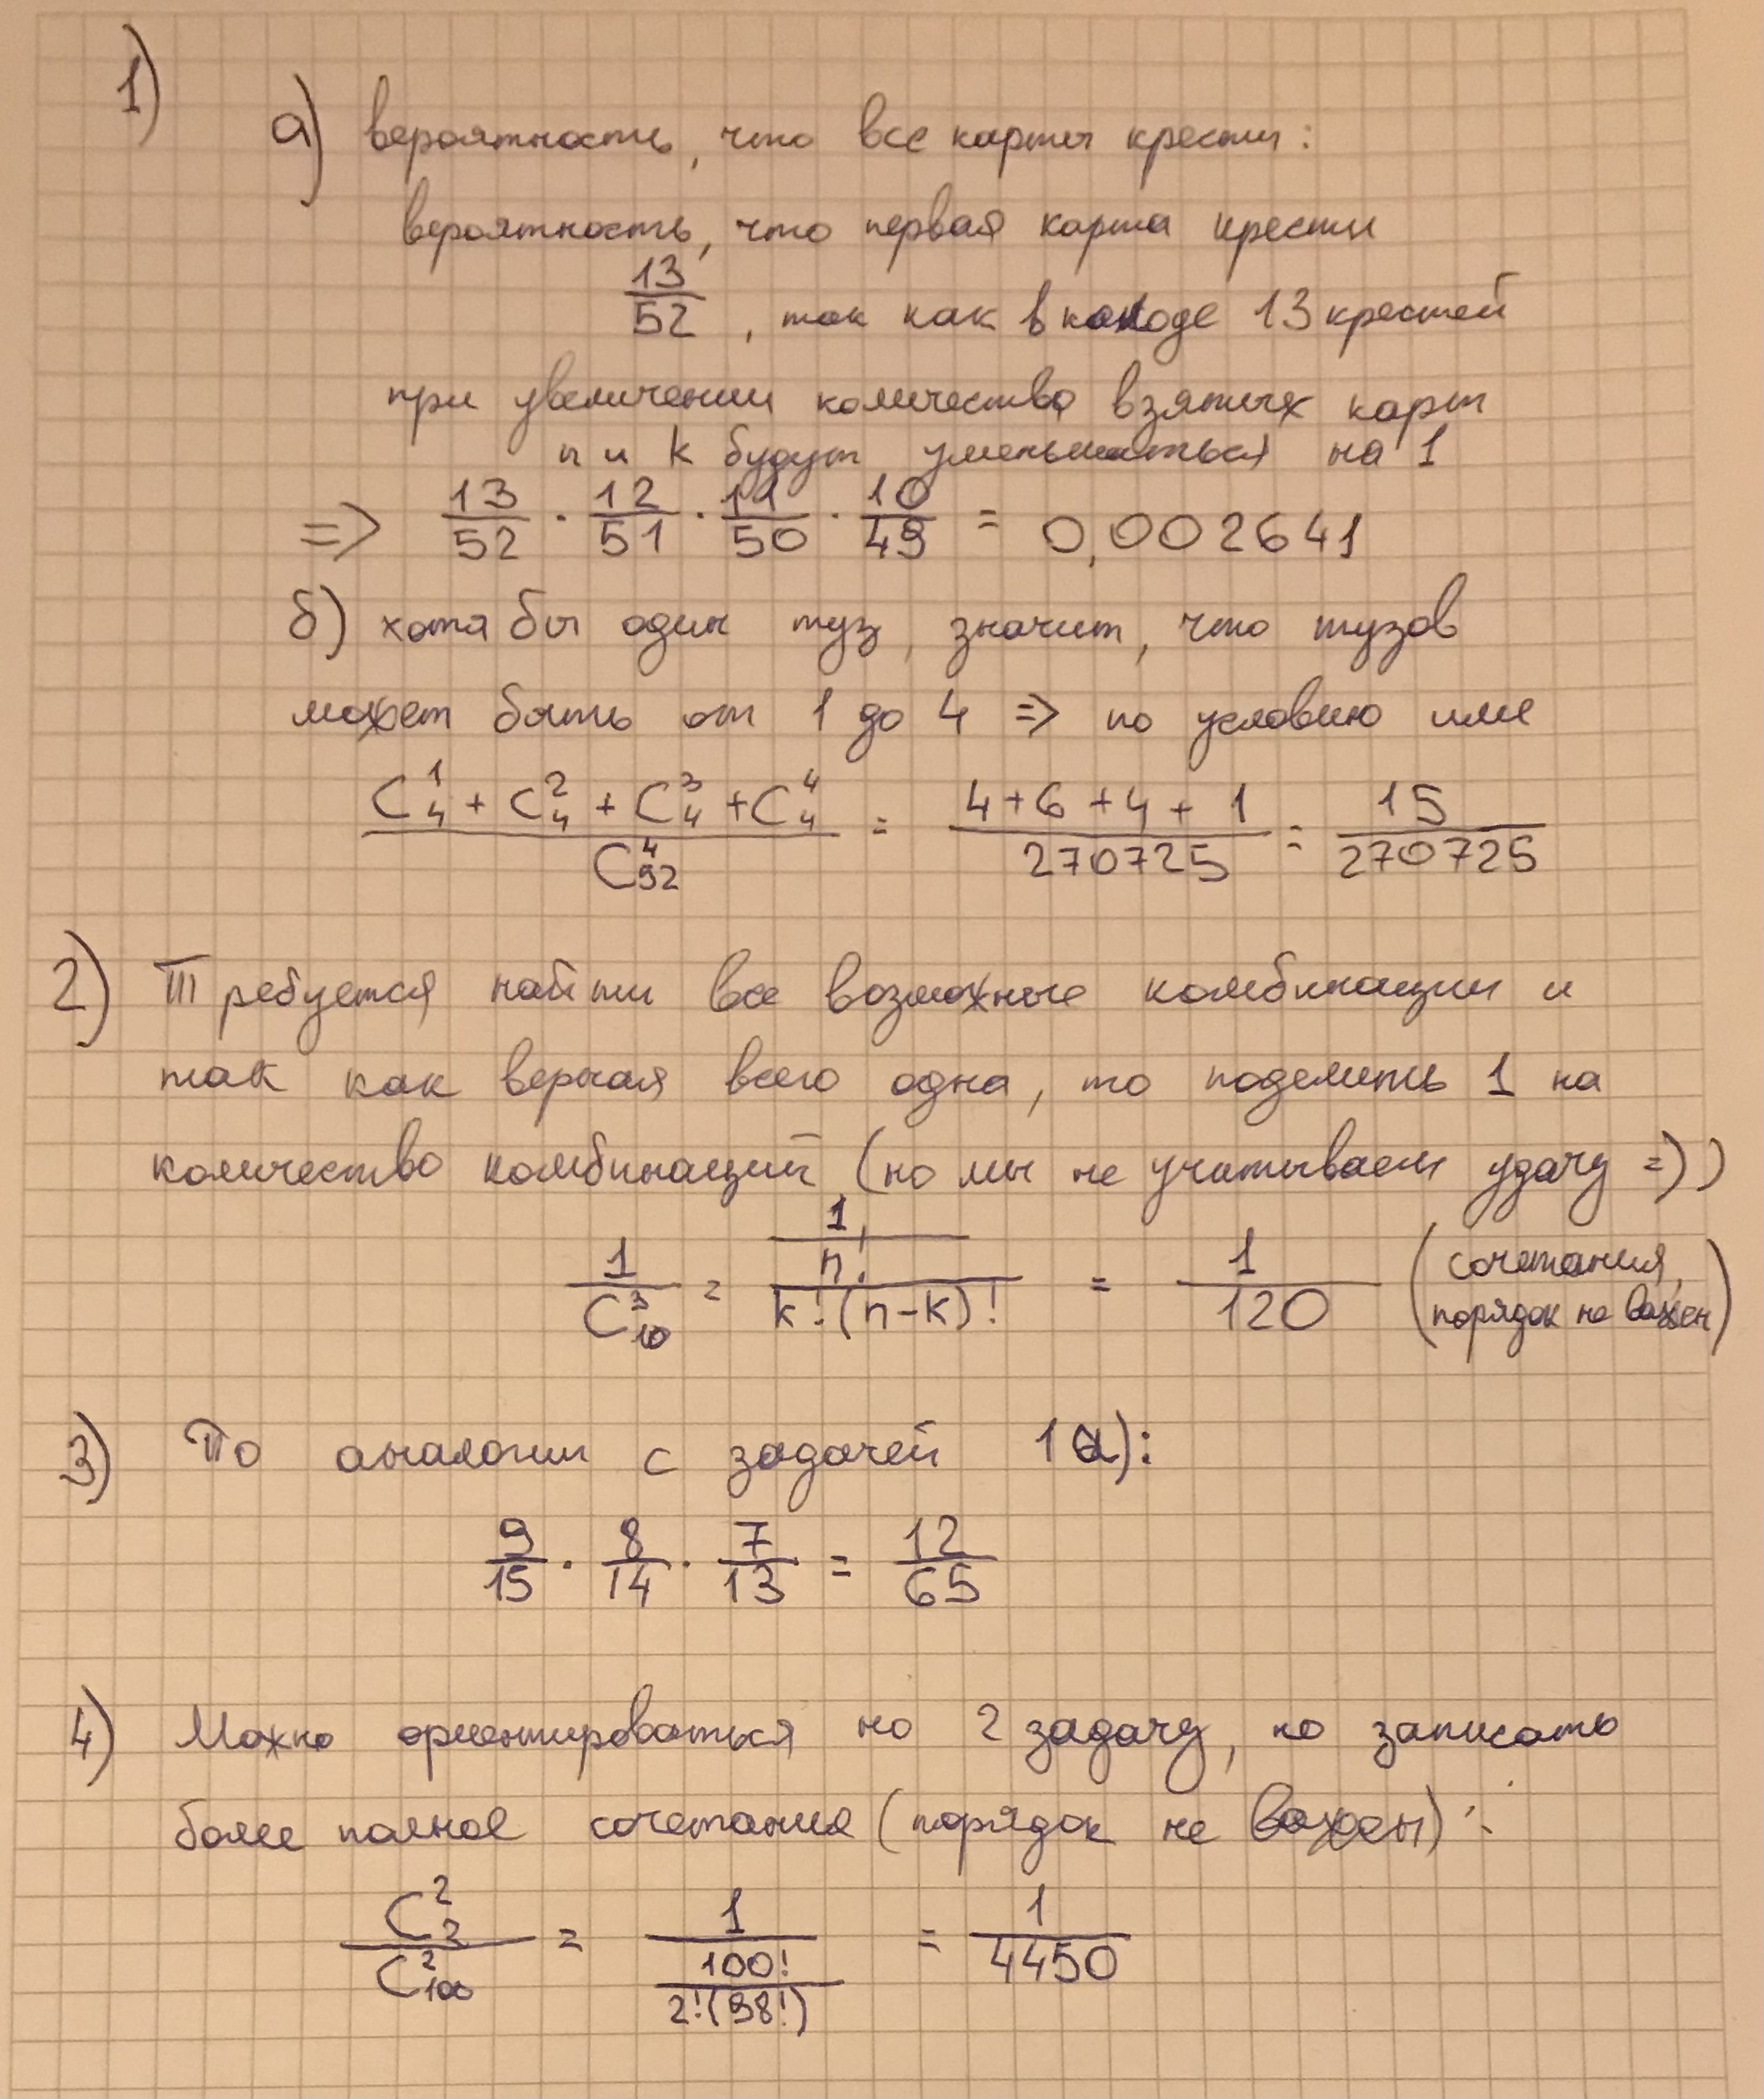 1)
а) вероятность, что все карты крести:
вероятность, что первая карта крести
13/52, так как в колоде 13 крестей
при увеличении количества взятых карт
n и k будут уменьшаться на 1
=> 13/52 · 12/51 · 11/50 · 10/49 = 0,002641
б) хотя бы один туз, значит, что тузов
может быть от 1 до 4 => по условию или
(C₄¹ + C₄² + C₄³ + C₄⁴)/C₅₂⁴ = (4+6+4+1)/270725 = 15/270725
2) Требуется найти все возможные комбинации и
так как верная всего одна, то поделить 1 на
количество комбинаций (но мы не учитываем удачу =))
1/C₁₀³ = 1/(n!/(k!(n-k)!)) = 1/120 (сочетания, порядок не важен)
3) По аналогии с задачей 1а):
9/15 · 8/14 · 7/13 = 12/65
4) Можно ориентироваться на 2 задачу, но записать
более полное сочетание (порядок не важен):
C₂²/C₁₀₀² = 1/(100!/(2!(98!))) = 1/4450